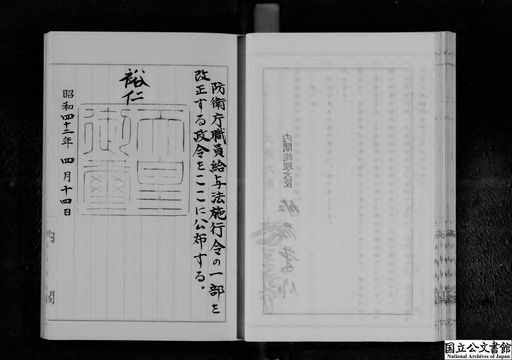 防衛庁職員給与法施行令の一部を
改正する政令をここに公布する。
裕仁
天皇御璽
昭和四十三年四月十四日
内閣
内閣総理大臣
国立公文書館
National Archives of Japan